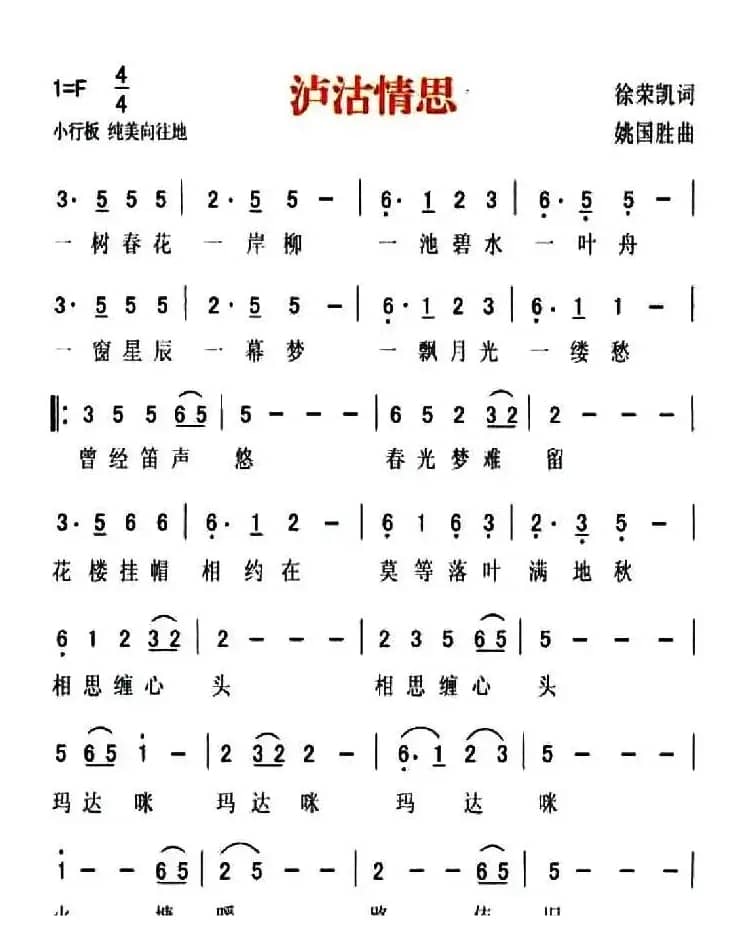 1=F 4/4
泸沽情思
徐荣凯词
小行板 纯美向往地
姚国胜曲
3· 5 5 5 | 2· 5 5 - | 6· 1 2 3 | 6· 5 5 - |
一树春花 一岸柳 一池碧水 一叶舟
3· 5 5 5 | 2· 5 5 - | 6· 1 2 3 | 6· 1 1 - |
一窗星辰 一幕梦 一飘月光 一缕愁
‖: 3 5 5 6 5 | 5 - - - | 6 5 2 3 2 | 2 - - - |
曾经笛声 悠 春光梦难 留
3· 5 6 6 | 6· 1 2 - | 6 1 6 3 | 2· 3 5 - |
花楼挂帽 相约在 莫等落叶 满地秋
6 1 2 3 2 | 2 - - - | 2 3 5 6 5 | 5 - - - |
相思缠心 头 相思缠心 头
5 6 5 1 - | 2 3 2 2 - | 6· 1 2 3 | 5 - - - |
玛达咪 玛达咪 玛 达 咪
1 - - 5 | 2 5 - - | 2 - - 6 5 | 5 - - - |